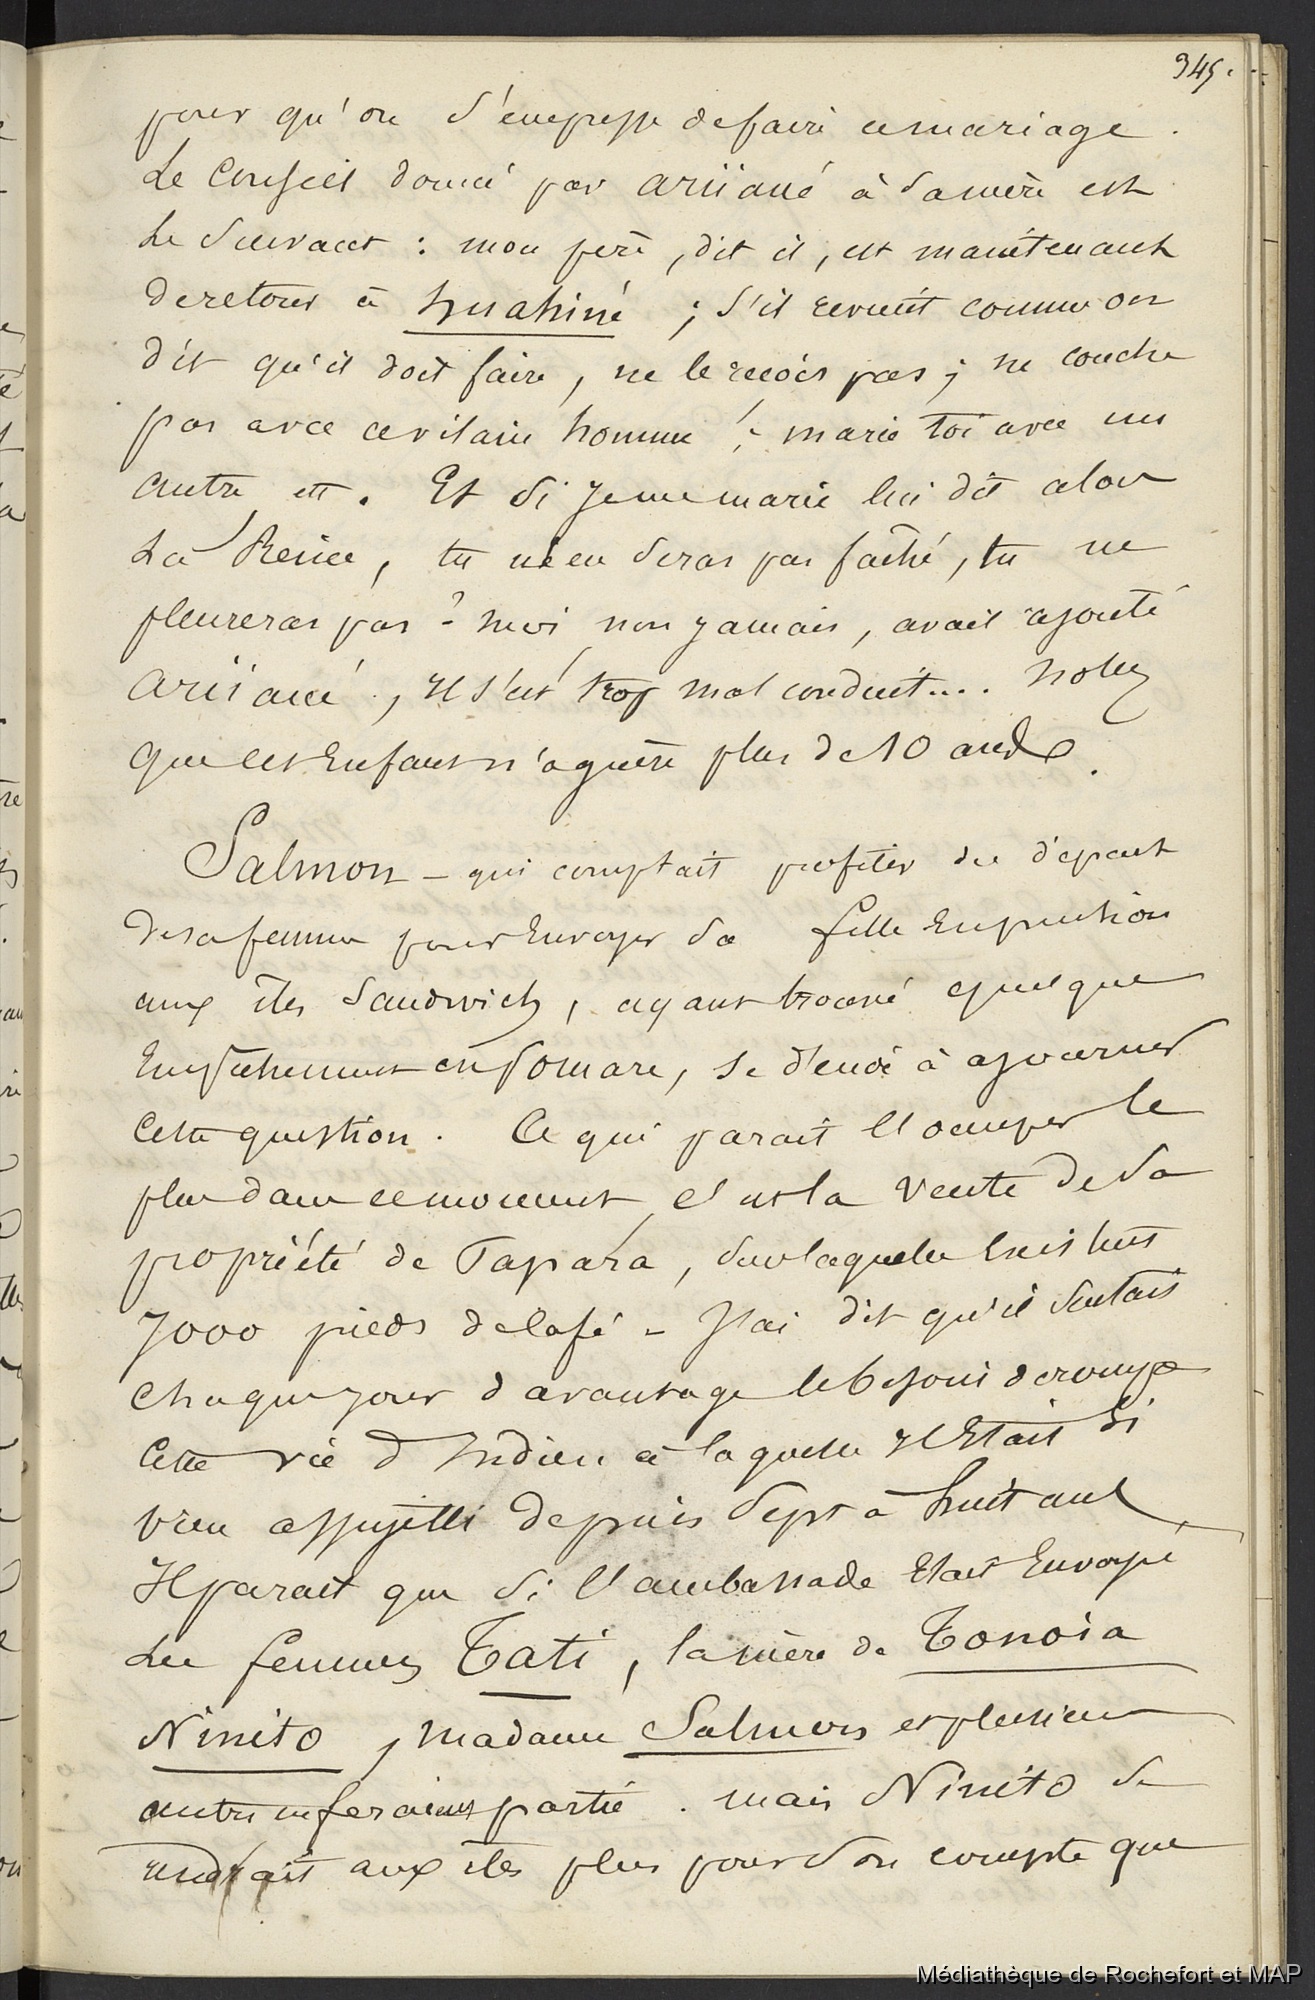 345.
pour qu'on s'empresse de faire ce mariage.
Le Conseil donné par ariiaué à sa mère est
le suivant : mon père, dit il, est maintenant
de retour à huahiné ; s'il revient comme on
dit qu'il doit faire, ne le reçois pas ; ne couche
pas avec ce vilain homme ! ; marie toi avec un
autre, etc. Et si je me marie lui dit alors
La Reine, tu n'en seras pas fâché, tu ne
pleureras pas ? moi non jamais, avait ajouté
ariiaué, Il s'est trop mal conduit.... notez
que cet Enfant n'a guère plus de 10 ans.
Salmon - qui comptait profiter du départ
de sa femme pour Envoyer sa fille En pension
aux îles Sandwich, ayant trouvé quelque
Empêchement en Pomare, se décide à ajourner
cette question. Ce qui parait l'occuper le
plus dans ce moment, c'est la vente de sa
propriété de Papara, sur laquelle Existent
7000 pieds de Café - J'ai dit qu'il sentait
chaque jour d'avantage le besoin de rompre
cette vie d'Indien à laquelle Il Etait si
bien assujetti depuis sept à huit ans
Il parait que si l'ambassade Etait Envoyée
les femmes Tati, la mère de Tonoia
Ninito, Madame Salmon et plusieurs
autres en feraient partie. mais Ninito se
rendrait aux îles plus pour son compte que
Médiathèque de Rochefort et MAP